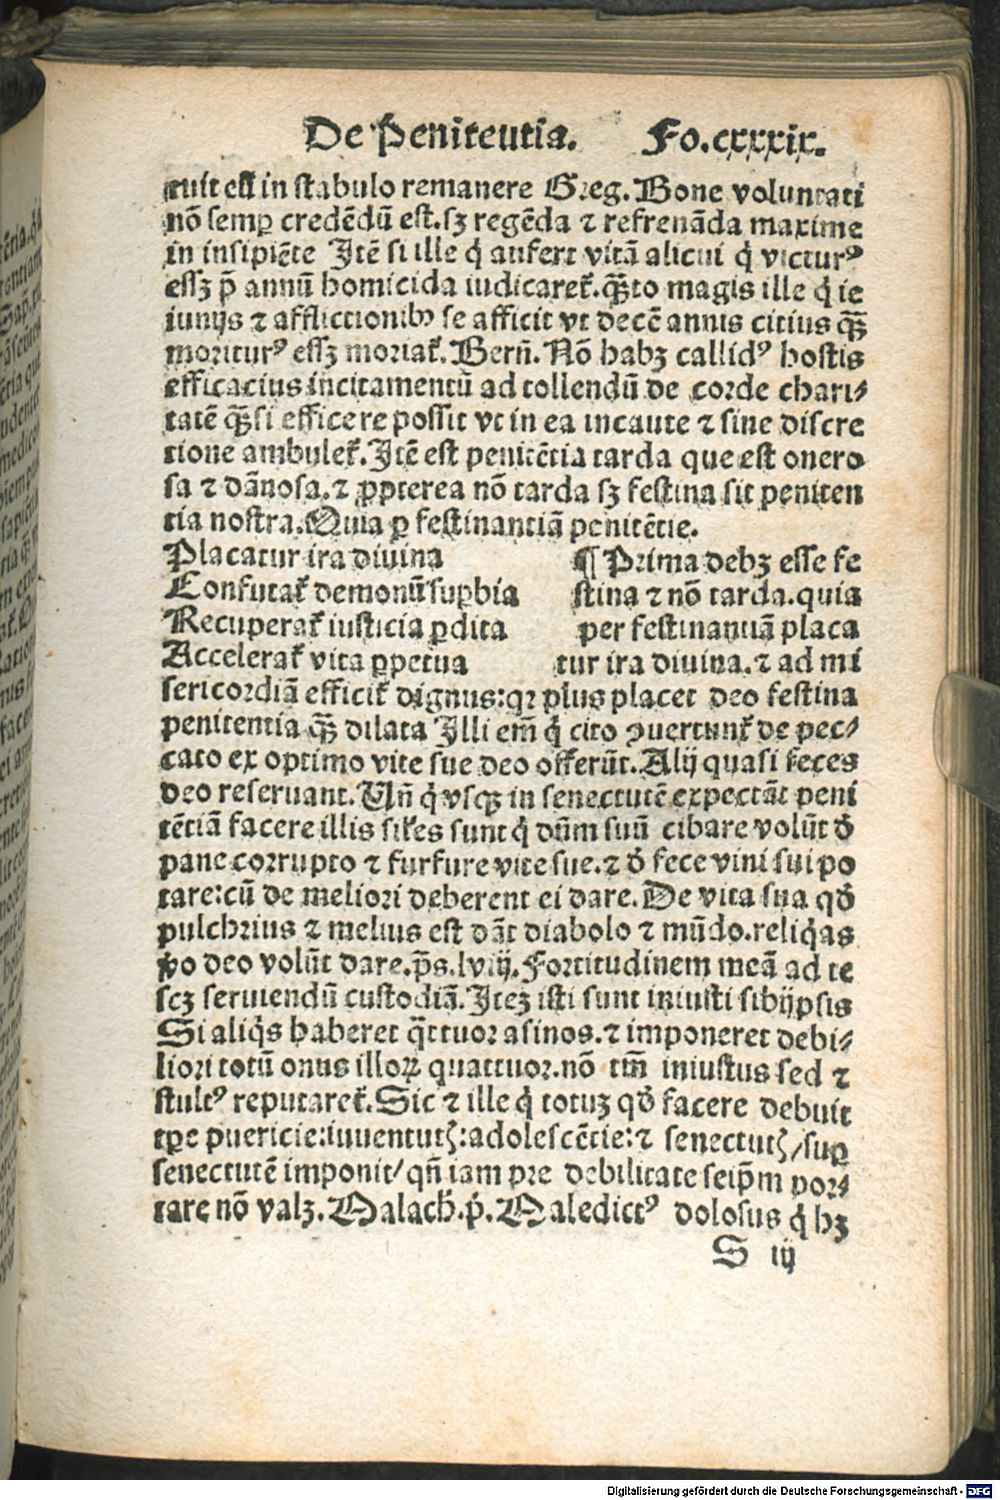 De Peniteutia. Fo.cxxxix.
tuit eū in stabulo remanere Greg. Bone voluntati
nō semꝑ credēdū est. sꝫ regēda ⁊ refrenāda maxime
in insipiēte Itē si ille q̇ aufert vitā alicui q̇ victurꝰ
essꝫ p̄ annū homicida iudicaret̄. qꝫ̄to magis ille q̇ ie
iunijs ⁊ afflictionibꝰ se afficit vt decē annis citius qꝫ̄
moriturꝰ essꝫ moriat̄. Berń. Nō habꝫ callidꝰ hostis
efficacius incitamentū ad tollendū de corde chari⸗
tatē qꝫ̄ si efficere possit vt in ea incaute ⁊ sine discre
tione ambulet̄. Itē est penitētia tarda que est onero
sa ⁊ dānosa. ⁊ ꝓpterea nō tarda sꝫ festina sit peniten
tia nostra. Quia ꝑ festinantiā penitētie.
Placatur ira diuina
Confutat̄ demonū suꝑbia
Recuperat̄ iusticia ꝑdita
Accelerat̄ vita ꝑpetua
¶ Prima debꝫ esse fe
stina ⁊ nō tarda. quia
per festinantiā placa
tur ira diuina. ⁊ ad mi
sericordiā efficit̄ dignus: qꝛ plus placet deo festina
penitentia qꝫ̄ dilata Illi em̄ q̇ cito ꝯuertunt̄ de pec⸗
cato ex optimo vite sue deo offerūt. Alij quasi feces
deo reseruant. Vn̄ q̇ vsqꝫ in senectutē expectāt peni
tētiā facere illis sil̄es sunt q̇ dn̄m suū cibare volūt d̄
pane corrupto ⁊ furfure vite sue. ⁊ d̄ fece vini sui po
tare: cū de meliori deberent ei dare. De vita sua qd̄
pulchrius ⁊ melius est dāt diabolo ⁊ mūdo. reliq̇as
ꝟo deo volūt dare. p̄s. lviij. Fortitudinem meā ad te
scꝫ seruiendū custodiā. Iteꝫ isti sunt iniusti sibijpsis
Si aliq̇s haberet q̈ttuor asinos. ⁊ imponeret debi⸗
liori totū onus illoꝝ quattuor. nō tm̄ iniustus sed ⁊
stultꝰ reputaret̄. Sic ⁊ ille q̇ totuꝫ qd̄ facere debuit
tꝑe puericie: iuuentutꝭ: adolescētie: ⁊ senectutꝭ/ suꝑ
senectutē imponit/ qn̄ iam pre debilitate seip̄m por⸗
tare nō valꝫ. Malach̄. ṗ. Maledictꝰ dolosus q̇ hꝫ
S iij
Digitalisierung gefördert durch die Deutsche Forschungsgemeinschaft - DFG